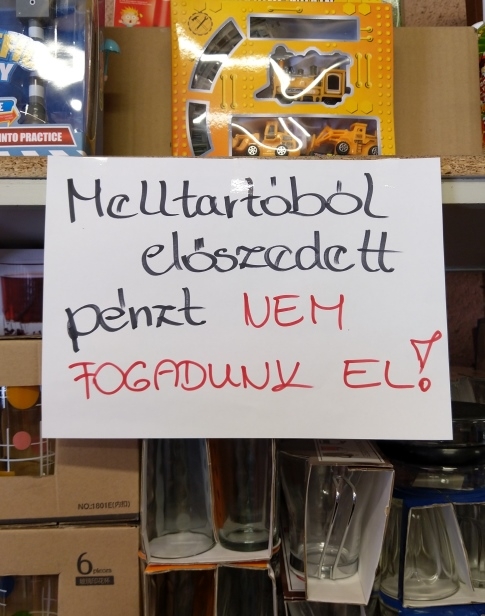 INTO PRACTICE
Melltartóból
előszedett
pénzt NEM
FOGADUNK EL!
6